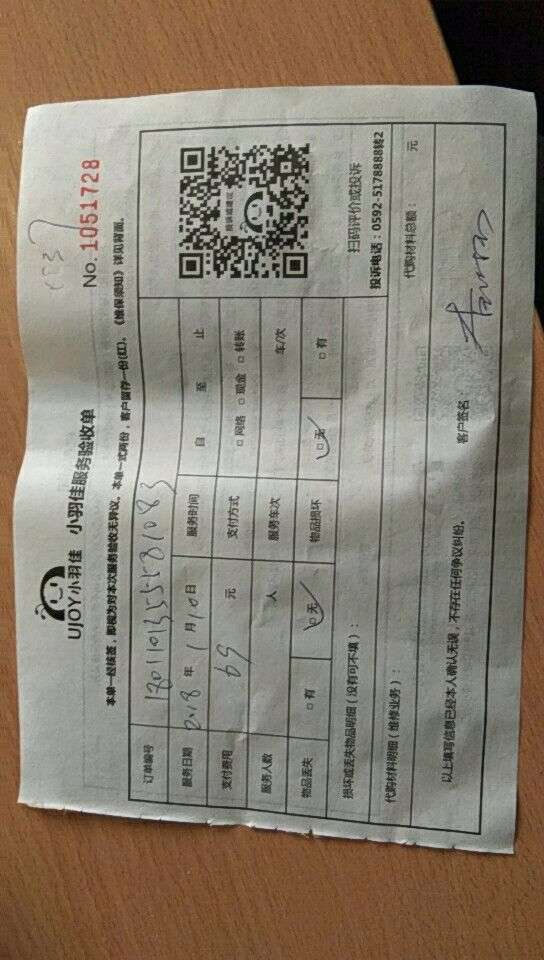 UJOY小羽佳 小羽佳服务验收单
No. 1051728
本单一经核签，即视为对本次服务验收无异议。本单一式两份，客户留存一份(红)。《维保须知》详见背面。
订单编号
服务日期 2018 年 1 月 10 日 服务时间 自 至 止
支付费用 69 元 支付方式 □ 网络 □ 现金 □ 转账
服务人数 人 服务车次 车/次
物品丢失 □ 有 □ 无 物品损坏 □ 无 □ 有
扫码评价或投诉
投诉电话：0592-5178888转2
损坏或丢失物品明细（没有可不填）：
代购材料明细（维修业务）： 代购材料总额： 元
以上填写信息已经本人确认无误，不存在任何争议纠纷。
客户签名